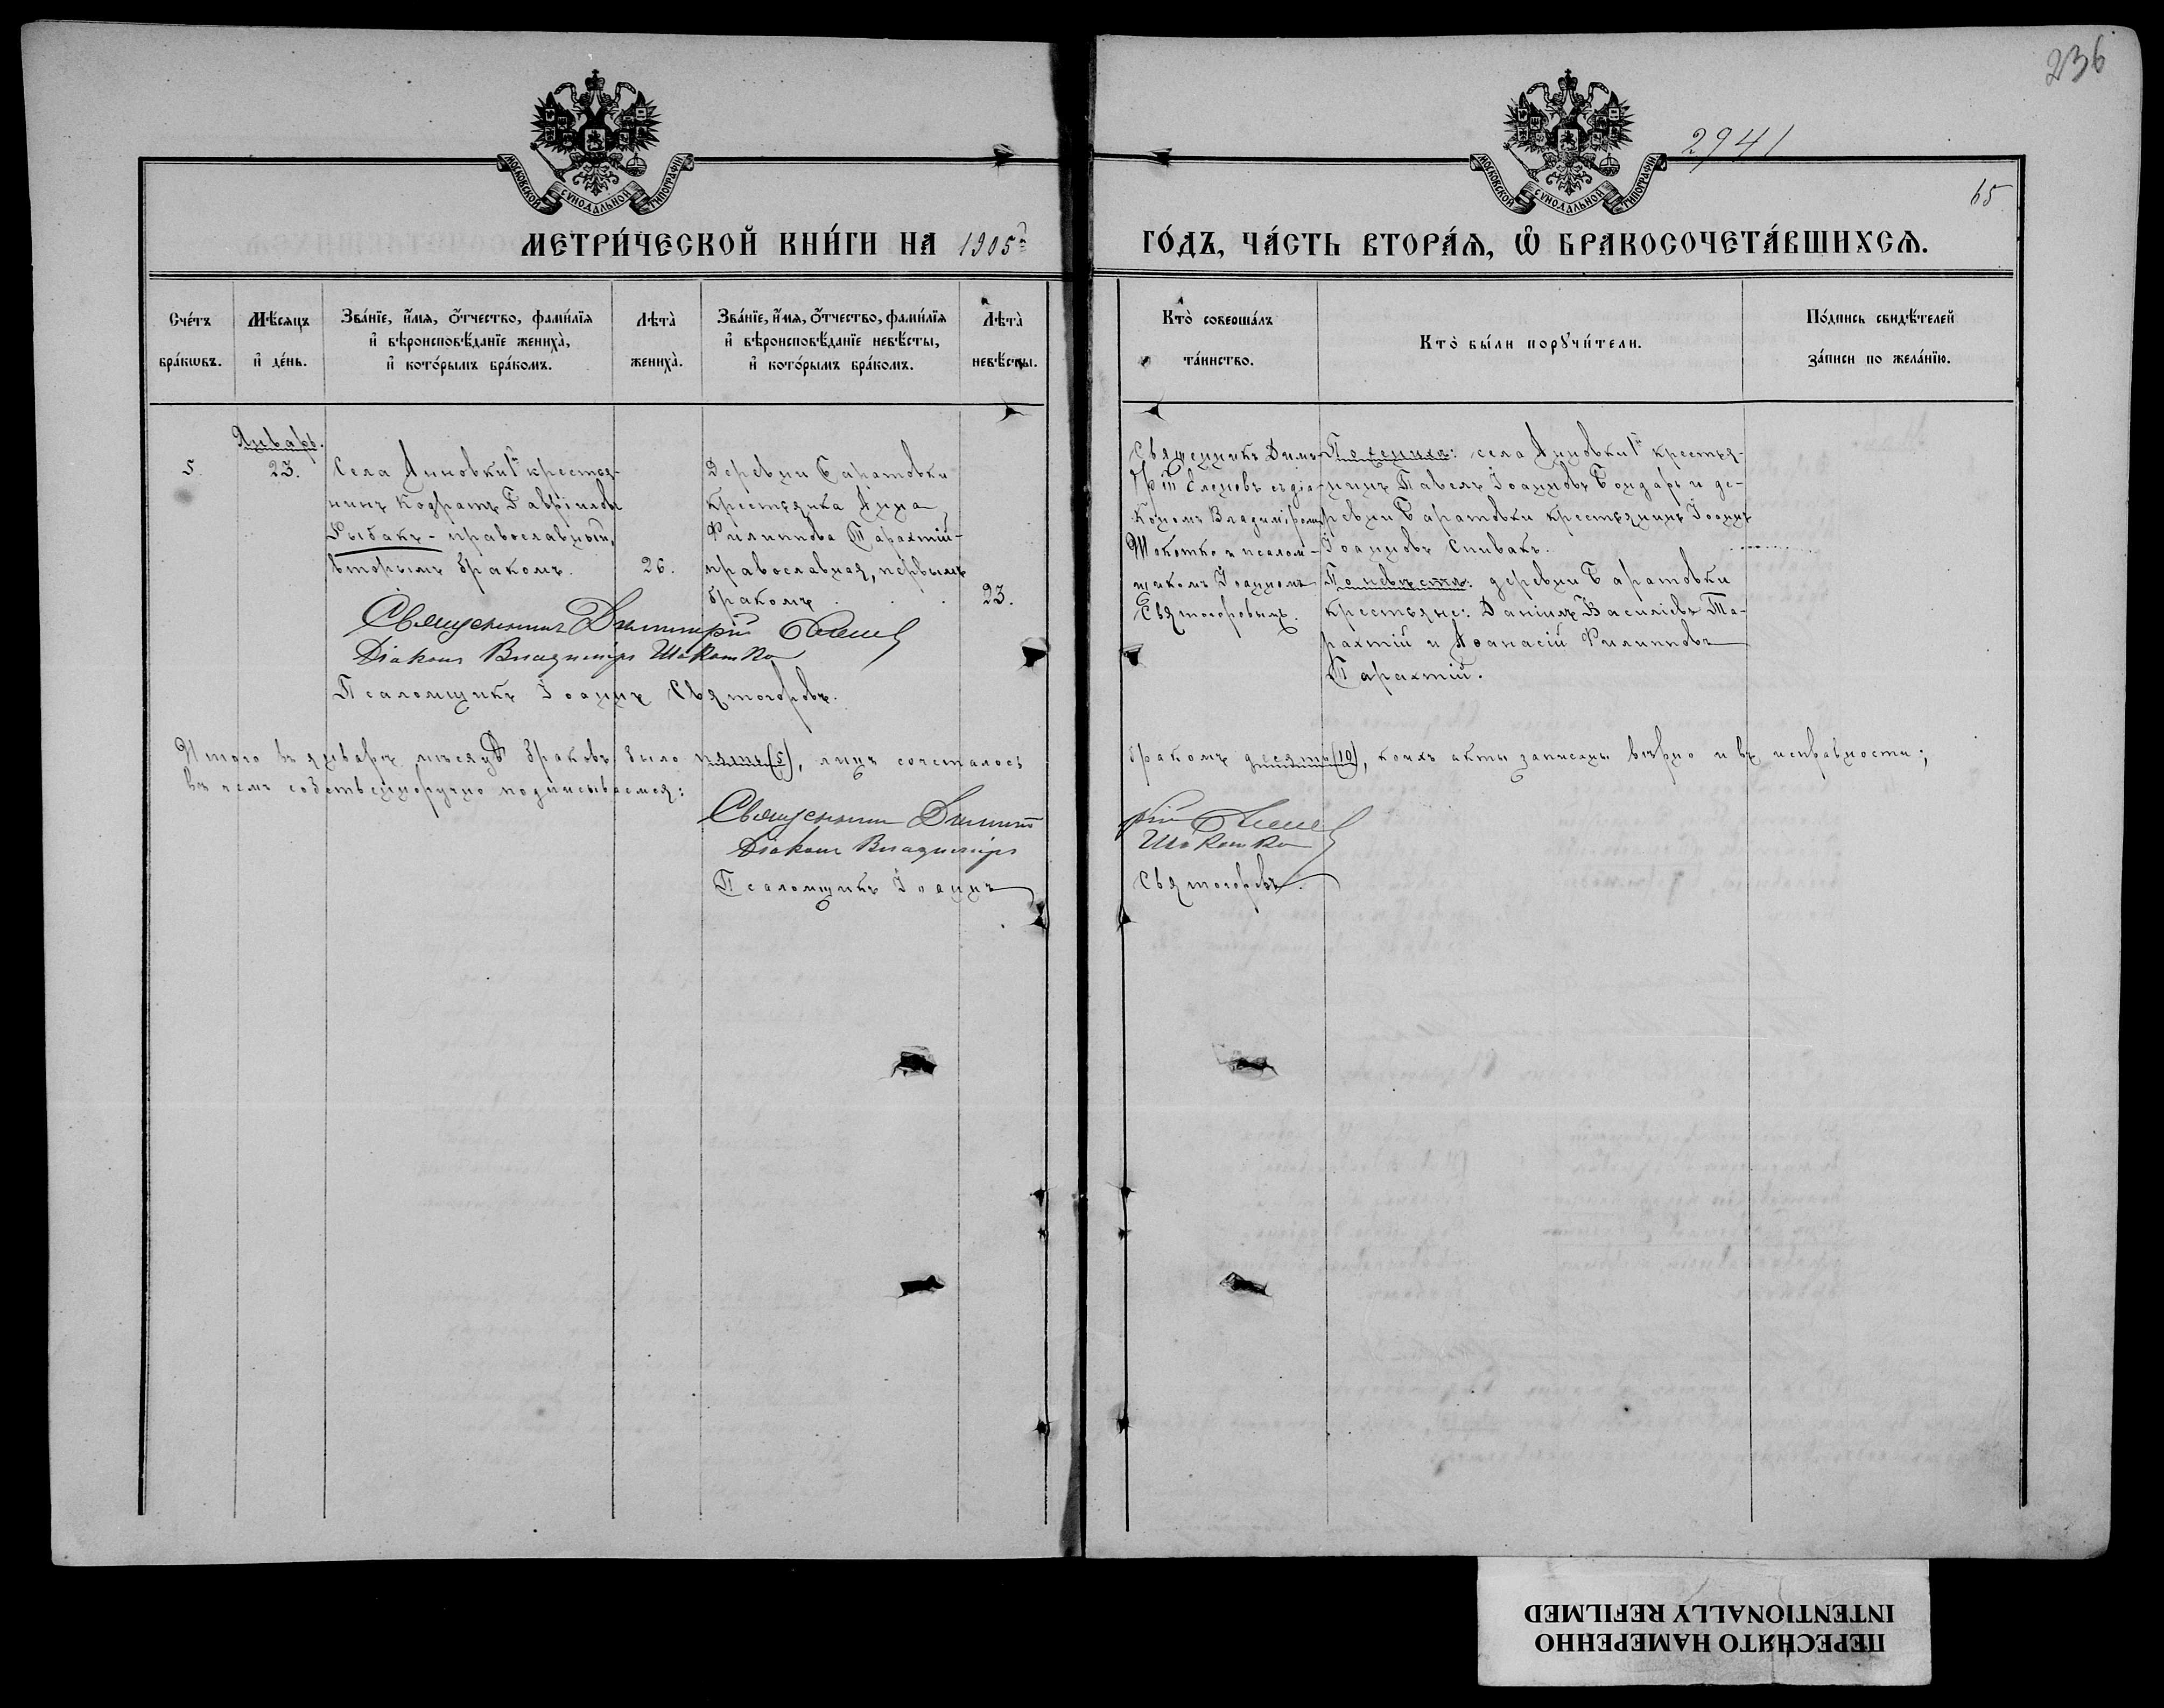 236
2941
65
МОСКОВСКОЙ СУНОДАЛЬНОЙ ТИПОГРАФІИ
МОСКОВСКОЙ СУНОДАЛЬНОЙ ТИПОГРАФІИ
МЕТРИ́ЧЕСКОЙ КНИ́ГИ НА 1905й
ГО́ДЪ, ЧА́СТЬ ВТОРА́Я, Ѡ҆ БРАКОСОЧЕТА́ВШИХСЯ.
Сче́тъ бра́кѡвъ.
Мѣ́сяцъ и҆ де́нь.
Зва́нїе, и҆́мя, ѻ҆́тчество, фами́лїя и҆ вѣроисповѣ́данїе жениха̀, и҆ кото́рымъ бра́комъ.
Лѣта̀ жениха̀.
Зва́нїе, и҆́мя, ѻ҆́тчество, фами́лїя и҆ вѣроисповѣ́данїе невѣ́сты, и҆ кото́рымъ бра́комъ.
Лѣта̀ невѣ́сты.
Кто̀ соверша́лъ та́инство.
Кто̀ бы́ли порꙋчи́тели.
По́дпись свидѣ́телей за́писи по жела́нїю.
5.
Январь.
23.
Села Анновки 1й крестья-
нинъ Кодратъ Гавріиловъ
Рыбакъ - православный,
вторымъ бракомъ.
26.
Деревни Саратовки
крестьянка Анна
Филиппова Тарахтій -
православная, первымъ
бракомъ
23.
Священникъ Дими-
трій Еленевъ съ діа-
кономъ Владиміромъ
Шокотко и псалом-
щикомъ Іоанномъ
Святогоровымъ.
По женихѣ: села Анновки 1й крестья-
нинъ Павелъ Іоанновъ Бондарь и де-
ревни Саратовки крестьянинъ Іоаннъ
Іоанновъ Спивакъ.
По невѣстѣ: деревни Саратовки
крестьяне: Даніилъ Василіевъ Та-
рахтій и Аѳанасій Филипповъ
Тарахтій.
Священникъ Димитрій Еленевъ
Діаконъ Владиміръ Шокотко
Псаломщикъ Іоаннъ Святогоровъ.
Итого въ январѣ мѣсяцѣ браковъ было пять (5), лицъ сочеталось бракомъ десять (10), коихъ акты записаны вѣрно и въ исправности;
въ чемъ собственноручно подписываемся:
Священникъ Димитрій Еленевъ
Діаконъ Владиміръ Шокотко
Псаломщикъ Іоаннъ Святогоровъ.
ПЕРЕСНЯТО НАМЕРЕННО
INTENTIONALLY REFILMED